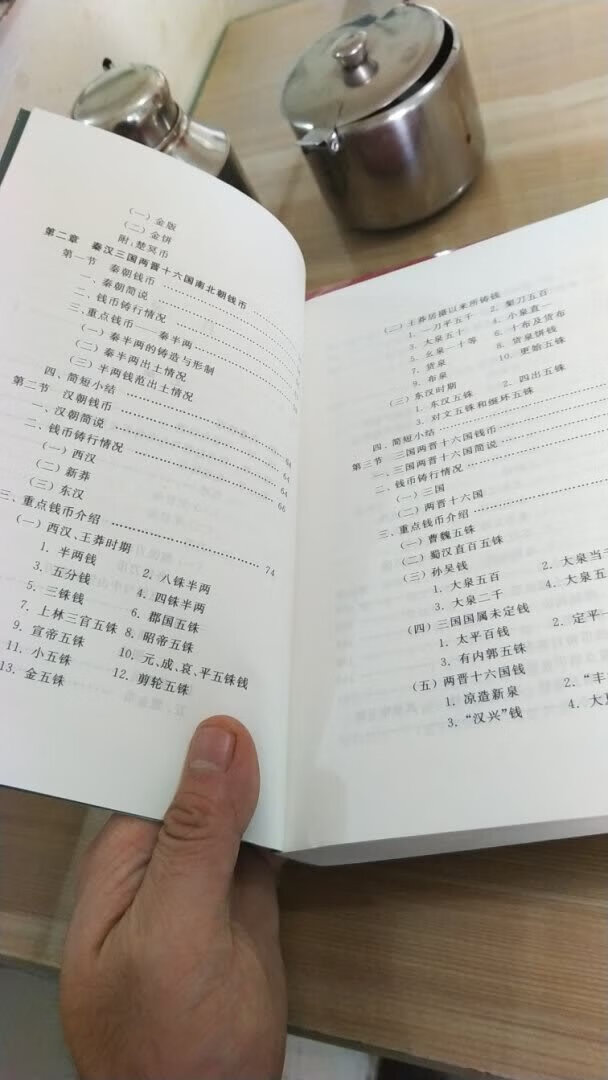 （一）金版
（二）金饼
附：楚冥币
第二章 秦汉三国两晋十六国南北朝钱币
第一节 秦朝钱币
一、秦朝简说
二、钱币铸行情况
三、重点钱币——秦半两
（一）秦半两的铸造与形制
（二）秦半两出土情况
（三）半两钱范出土情况
四、简短小结
第二节 汉朝钱币
一、汉朝简说
二、钱币铸行情况 64
（一）西汉 64
（二）新莽 64
（三）东汉 66
三、重点钱币介绍
（一）西汉、王莽时期 74
1. 半两钱 2. 八铢半两
3. 五分钱 4. 四铢半两
5. 三铢钱 6. 郡国五铢
7. 上林三官五铢 8. 昭帝五铢
9. 宣帝五铢 10. 元、成、哀、平五铢钱
11. 小五铢 12. 剪轮五铢
13. 金五铢
（二）王莽居摄以来所铸钱
1. 一刀平五千 2. 契刀五百
3. 大泉五十 4. 小泉直一
5. 幺泉一十等 6. 十布及货布
7. 货泉 8. 货泉饼钱
9. 布泉 10. 更始五铢
（三）东汉时期
1. 东汉五铢 2. 四出五铢
3. 对文五铢和𫄧环五铢
四、简短小结
第三节 三国两晋十六国钱币
一、三国两晋十六国简说
二、钱币铸行情况
（一）三国
（二）两晋十六国
三、重点钱币介绍
（一）曹魏五铢
（二）蜀汉直百五铢
（三）孙吴钱
1. 大泉五百 2. 大泉当
3. 大泉二千 4. 大泉五
（四）三国国属未定钱
1. 太平百钱 2. 定平一
3. 有内郭五铢
（五）两晋十六国钱
1. 凉造新泉 2. “丰
3. “汉兴”钱 4. 大